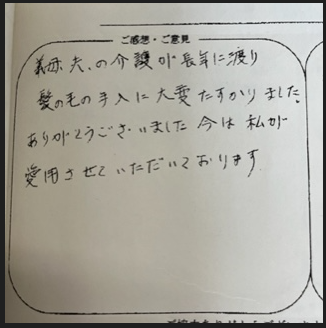 ご感想・ご意見
義母、夫、の介護が長年に渡り
髪の毛の手入に大変たすかりました。
ありがとうございました 今は 私が
愛用させていただいております